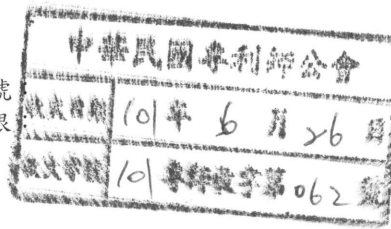 中華民國專利師公會
號
收文日期 101年 6 月 26 日
限
收文字號 101專師收字第062號